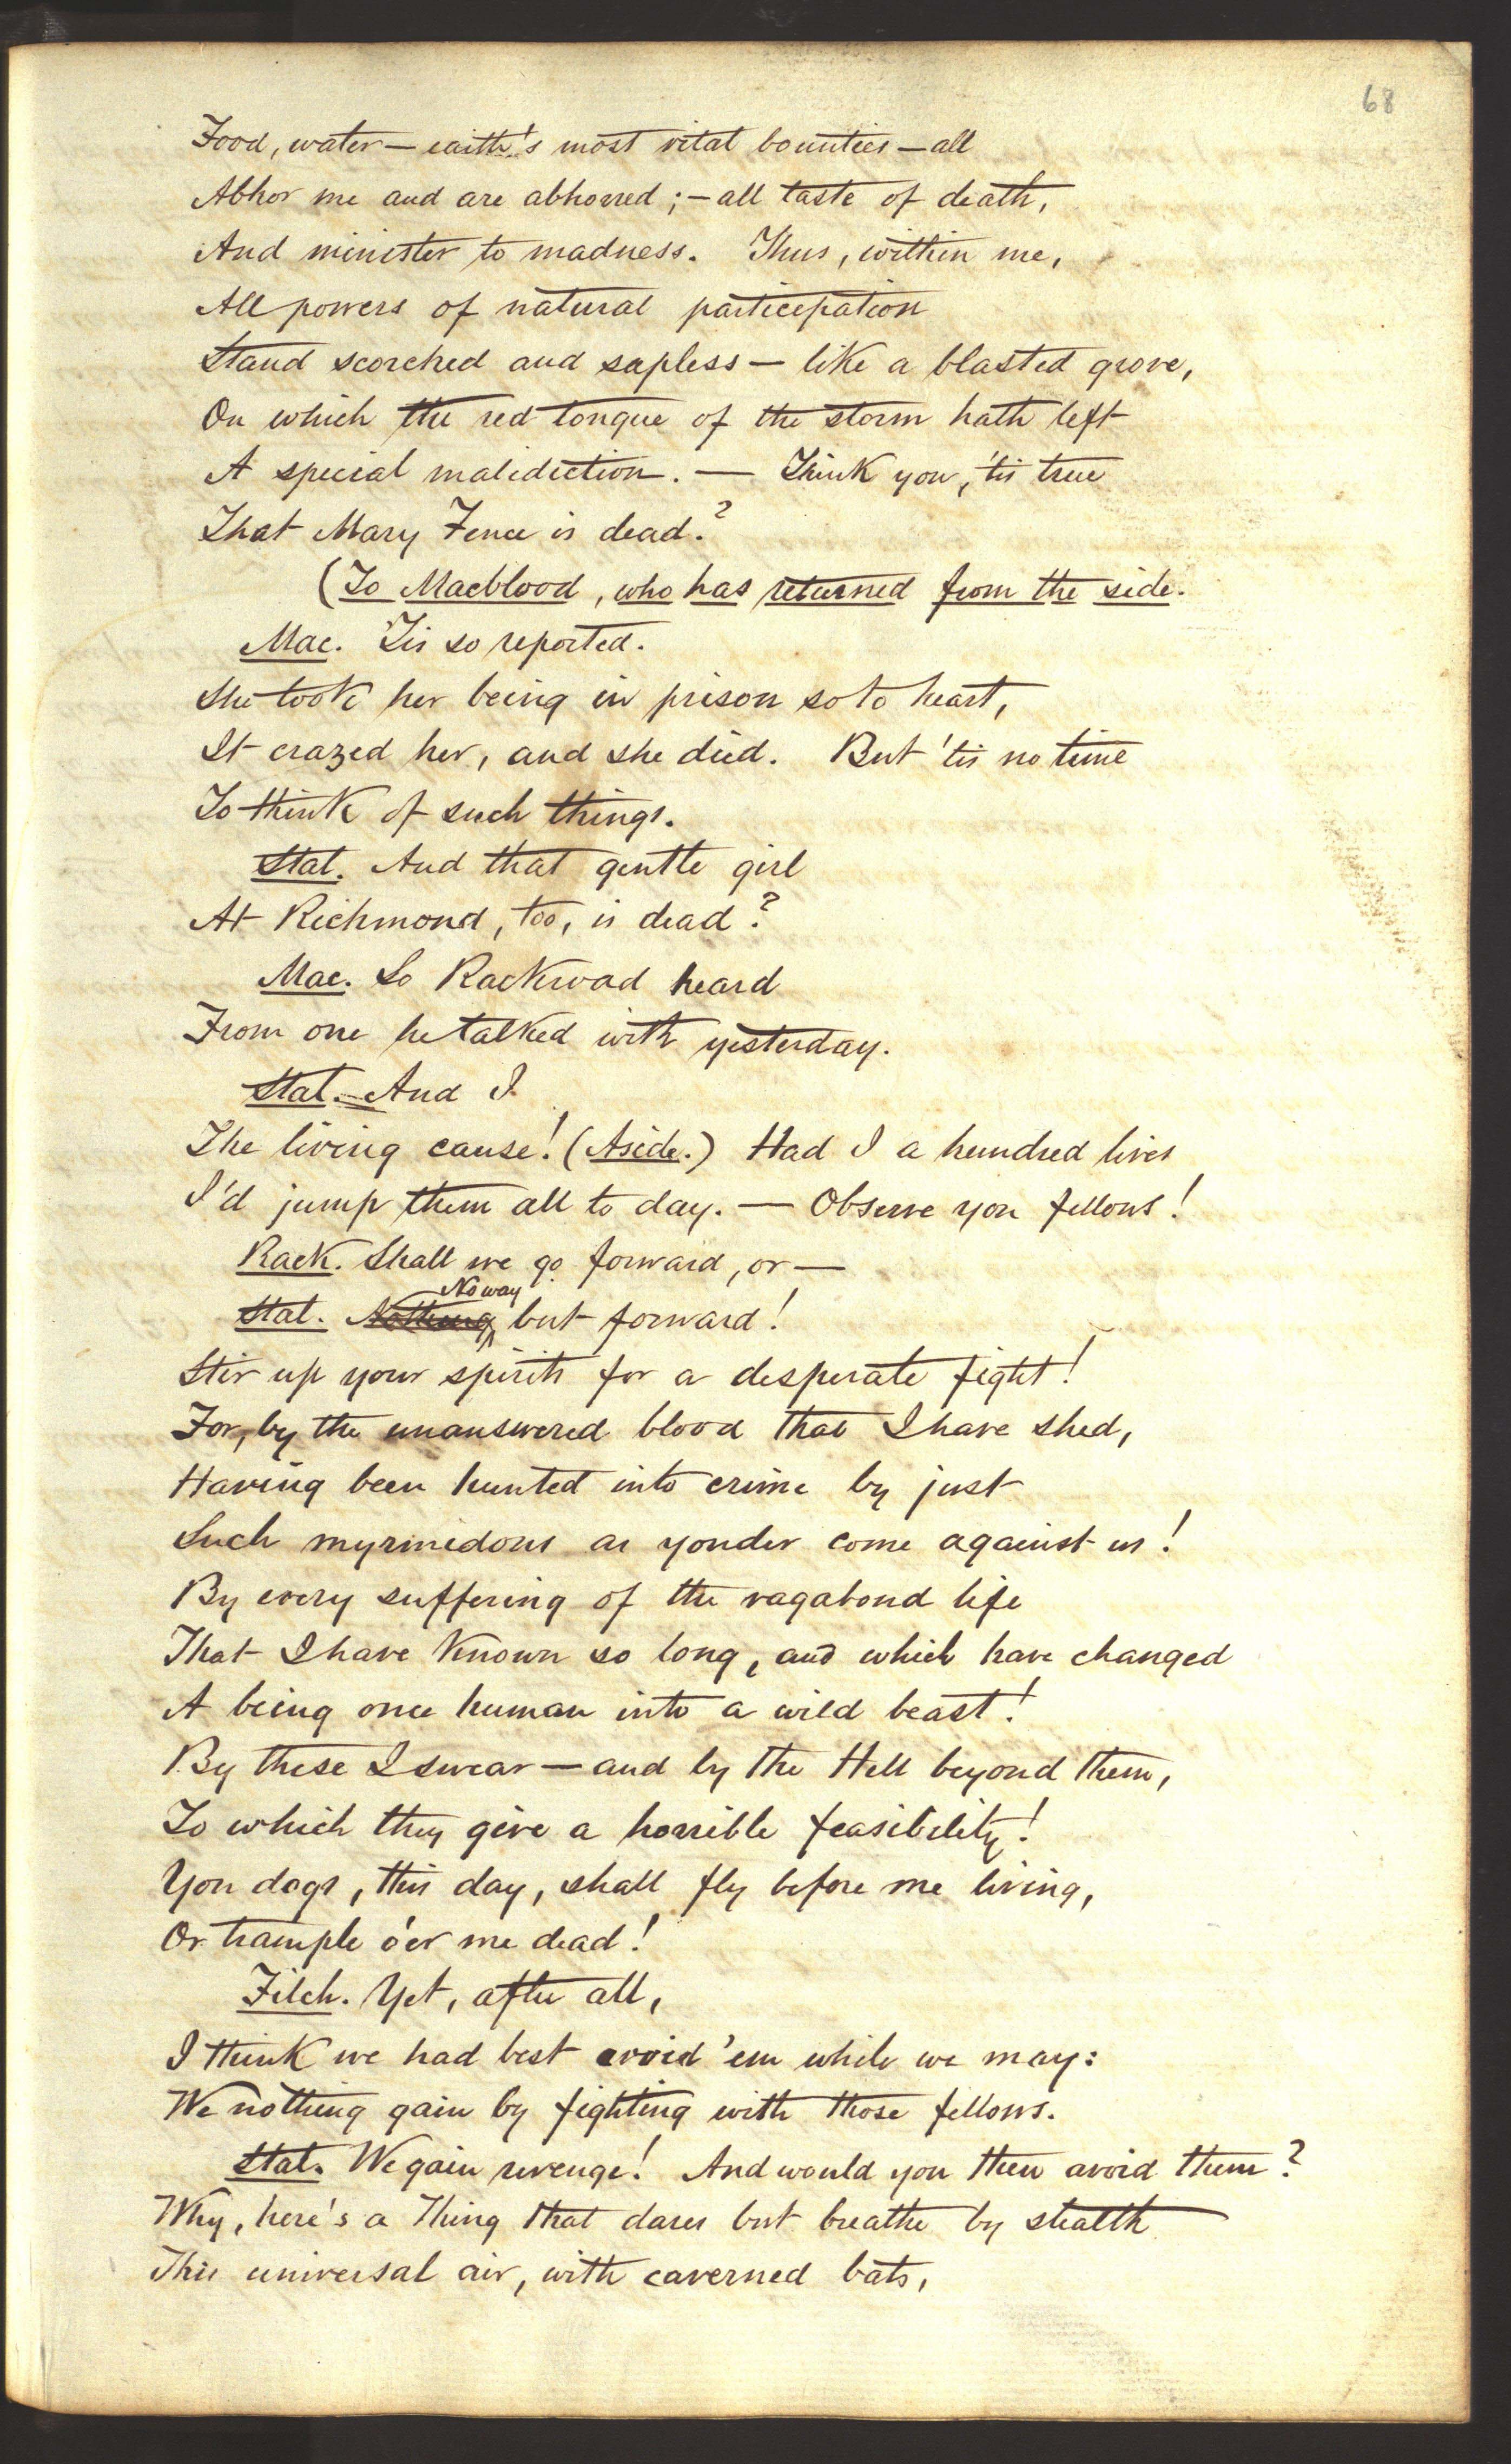 68
Food, water — earth's most vital bounties — all
Abhor me and are abhorred; — all taste of death,
And minister to madness. Thus, within me,
All powers of natural participation
Stand scorched and sapless — like a blasted grove,
On which the red tongue of the storm hath left
A special malediction. — Think you, 'tis true
That Mary Fence is dead?
(To Macblood, who has returned from the side.
Mac. 'Tis so reported.
She took her being in prison so to heart,
It crazed her, and she died. But 'tis no time
To think of such things.
Stal. And that gentle girl
At Richmond, too, is dead?
Mac. So Rackroad heard
From one he talked with yesterday.
Stal. And I
The living cause! (Aside.) Had I a hundred lives
I'd jump them all to day. — Observe yon fellows!
Rack. Shall we go forward, or —
No way
Stal. Nothing but forward!
Stir up your spirits for a desperate fight!
For, by the unanswered blood that I have shed,
Having been hunted into crime by just
Such myrmidons as yonder come against us!
By every suffering of the vagabond life
That I have known so long, and which have changed
A being once human into a wild beast!
By these I swear — and by the Hell beyond them,
To which they give a horrible feasibility!
Yon dogs, this day, shall fly before me living,
Or trample o'er me dead!
Filch. Yet, after all,
I think we had best avoid 'em while we may:
We nothing gain by fighting with those fellows.
Stal. We gain revenge! And would you then avoid them?
Why, here's a Thing that dares but breathe by stealth
This universal air, with caverned bats,